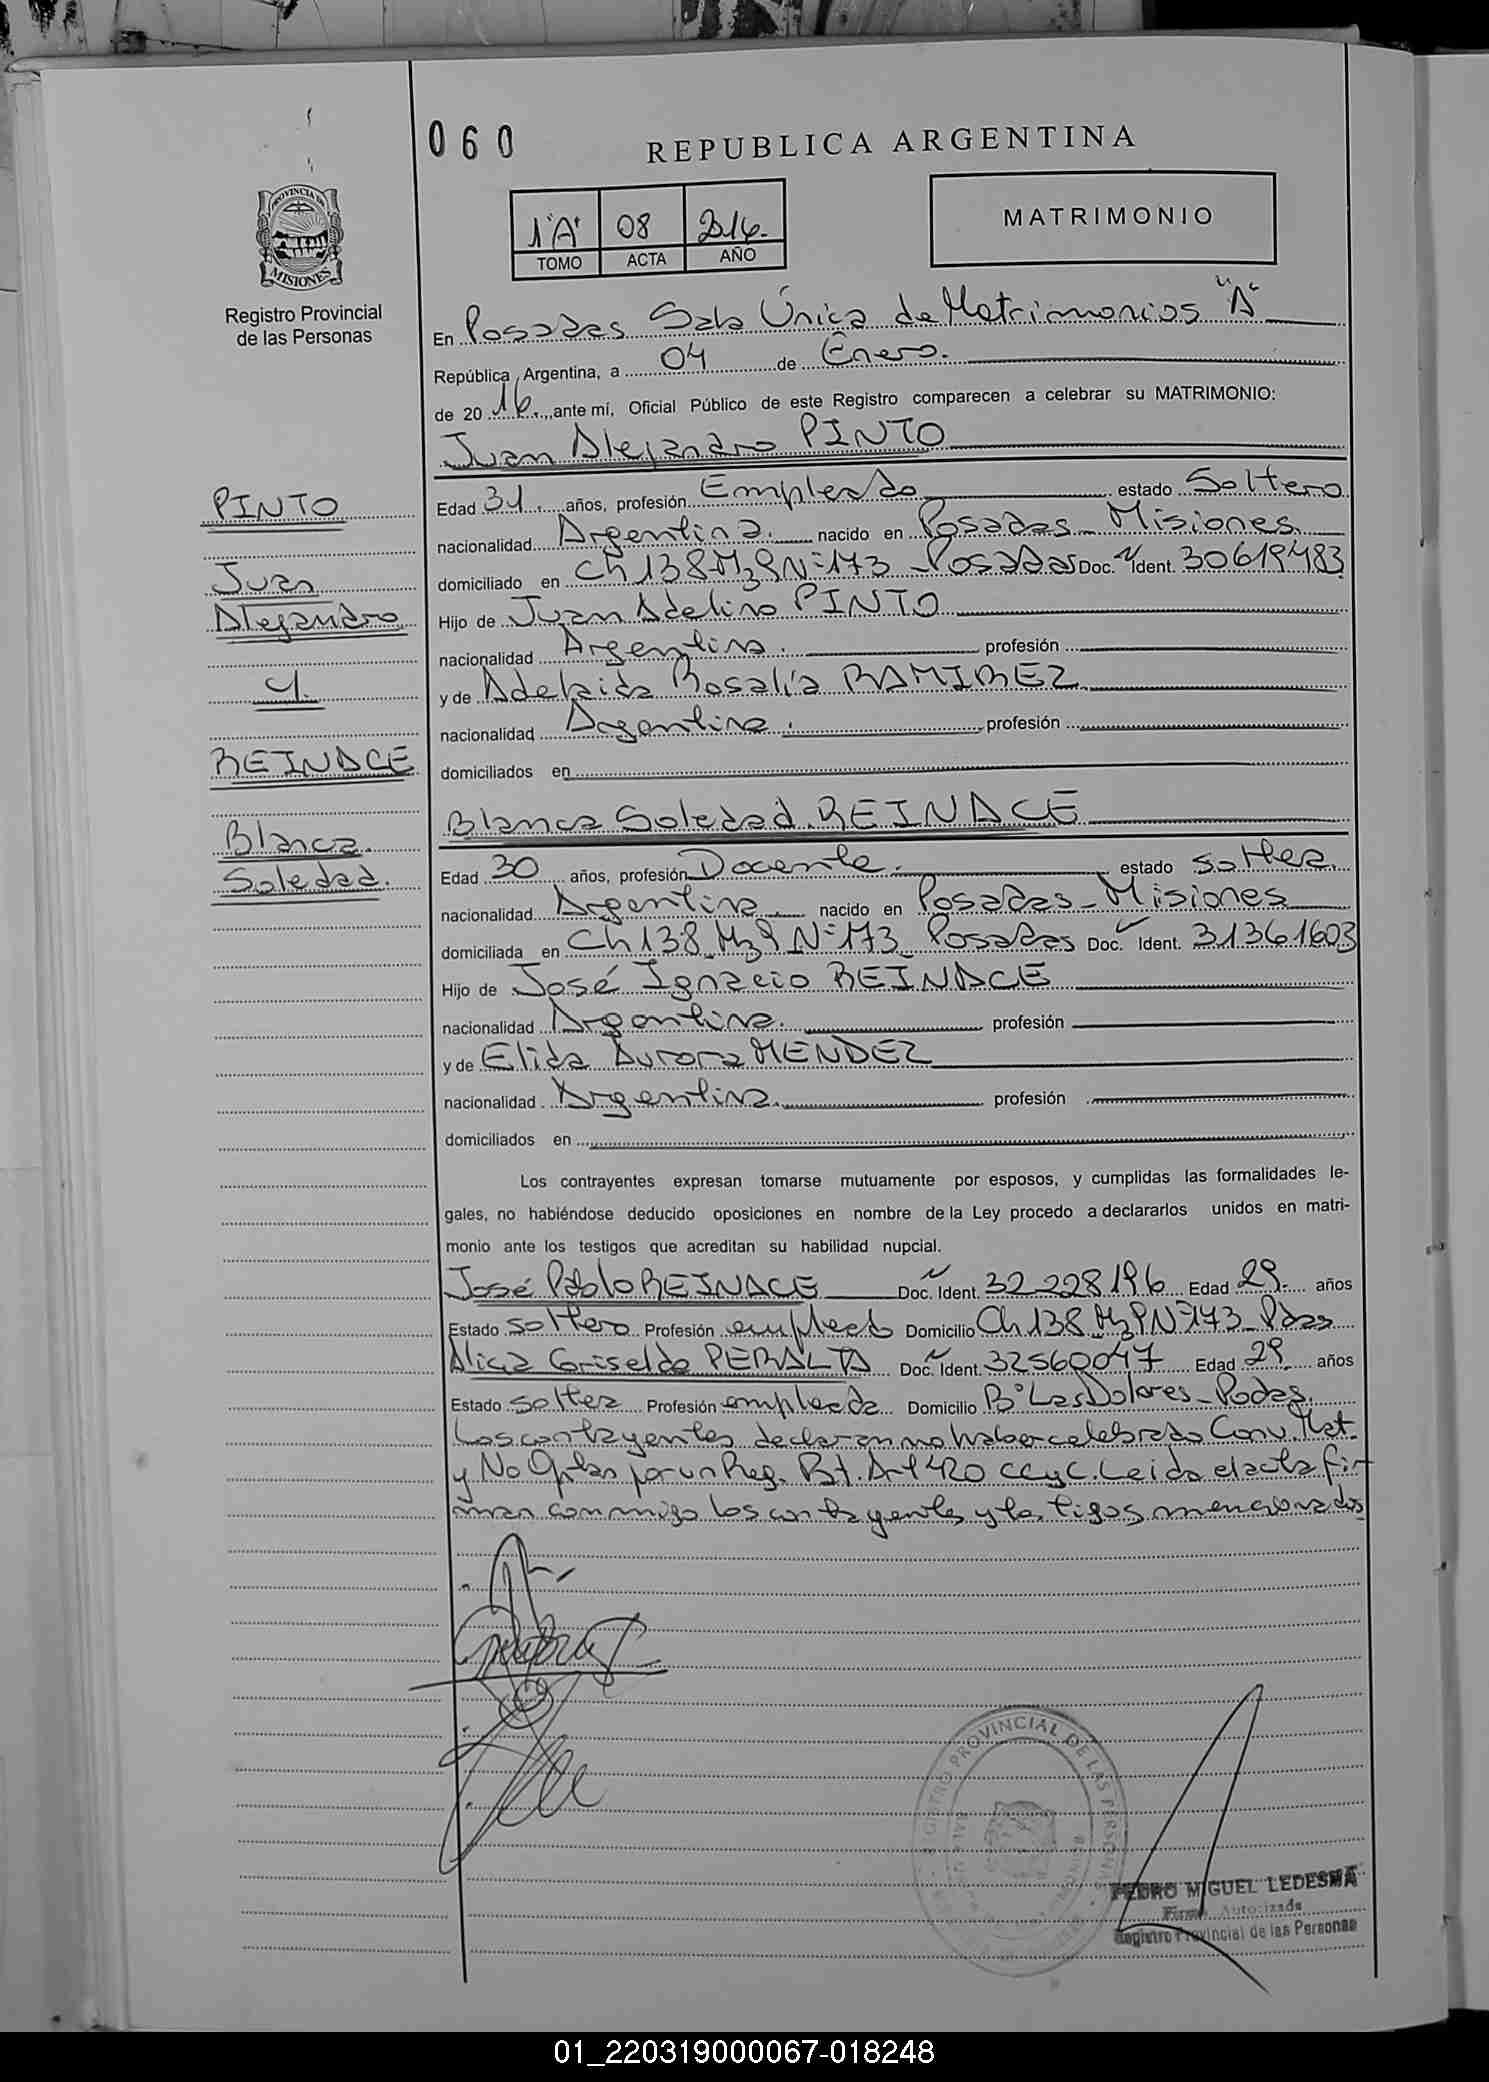 060
REPUBLICA ARGENTINA
PROVINCIA DE
MISIONES
Registro Provincial
de las Personas
1"A" 08 2016.
TOMO ACTA AÑO
MATRIMONIO
En Posadas Sala Única de Matrimonios "A"
República Argentina, a 04 de Enero.
de 20 16. ante mí, Oficial Público de este Registro comparecen a celebrar su MATRIMONIO:
Juan Alejandro PINTO
PINTO
Juan
Alejandro
y.
REINACE
Blanca.
Soledad.
Edad 31. años, profesión Empleado estado Soltero
nacionalidad Argentina. nacido en Posadas - Misiones.
domiciliado en Ch 138 Mz 9 Nº 173 - Posadas Doc. Ident. 30619483
Hijo de Juan Adelino PINTO
nacionalidad Argentina. profesión
y de Adelaida Rosalía RAMIREZ
nacionalidad Argentina. profesión
domiciliados en
Blanca Soledad REINACE
Edad 30 años, profesión Docente. estado soltera.
nacionalidad Argentina nacido en Posadas - Misiones
domiciliada en Ch 138 Mz 9 Nº 173 Posadas Doc. Ident. 31361603
Hijo de José Ignacio REINACE
nacionalidad Argentina. profesión
y de Elida Aurora MENDEZ
nacionalidad Argentina. profesión
domiciliados en
Los contrayentes expresan tomarse mutuamente por esposos, y cumplidas las formalidades le-
gales, no habiéndose deducido oposiciones en nombre de la Ley procedo a declararlos unidos en matri-
monio ante los testigos que acreditan su habilidad nupcial.
José Pablo REINACE Doc. Ident. 32.228.196 Edad 29. años
Estado soltero Profesión empleado Domicilio Ch 138 Mz 9 Nº 173 - Pdas
Alicia Griselda PERALTA Doc. Ident. 32560047 Edad 29 años
Estado soltera Profesión empleada Domicilio Bº Las Dolores - Podas.
Los contrayentes declaran no haber celebrado Conv. Mat.
y No Optan por un Reg. Pat. Art 420 CCyC. Leida el acta fir-
man conmigo los contrayentes y testigos mencionados
REGISTRO PROVINCIAL DE LAS PERSONAS
PEDRO MIGUEL LEDESMA
Firma Autorizada
Registro Provincial de las Personas
01_220319000067-018248